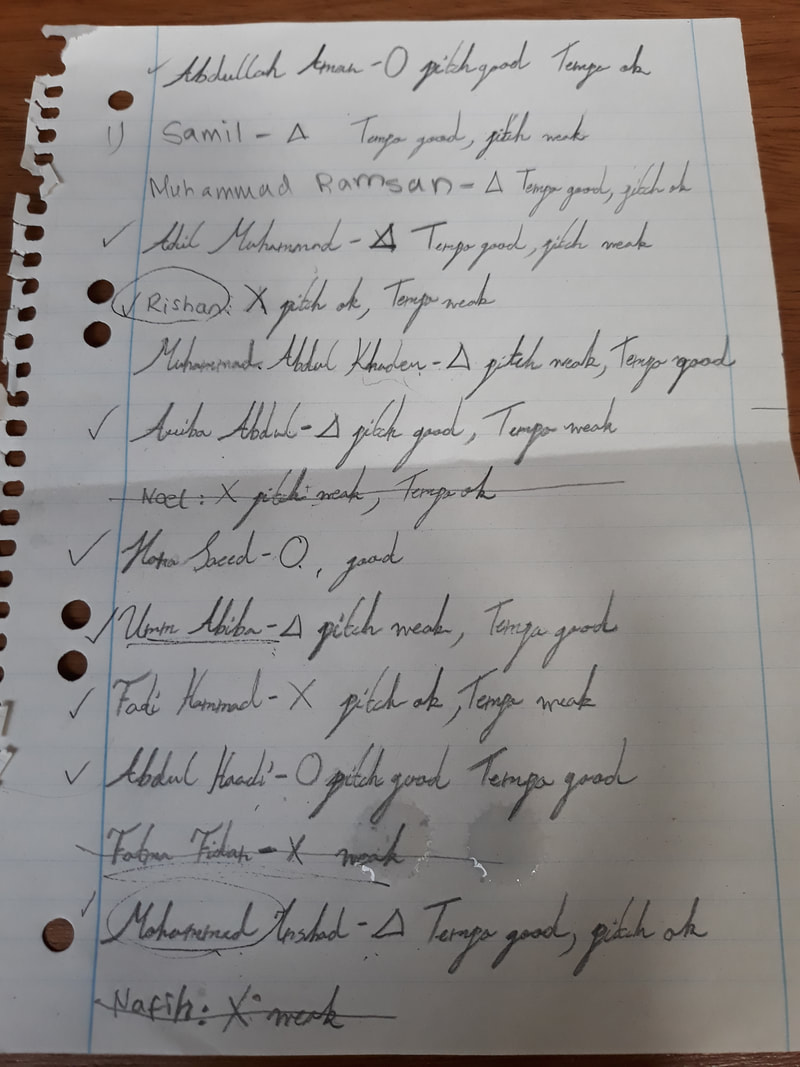 ✓ Abdullah Aman - O pitch good Tempo ok
1) Samil - Δ Tempo good, pitch weak
Muhammad Ramsan - Δ Tempo good, pitch ok
✓ Adil Muhammad - Δ Tempo good, pitch weak
✓ Rishan: X pitch ok, Tempo weak
Muhammad Abdul Khader - Δ pitch weak, Tempo good
✓ Ariba Abdul - Δ pitch good, Tempo weak
Noel: X pitch weak, Tempo ok
✓ Hana Saeed - O, good
✓ Umm Abiba - Δ pitch weak, Tempo good
✓ Fadi Hammad - X pitch ok, Tempo weak
✓ Abdul Haadi - O pitch good Tempo good
Fatma Fidan - X weak
✓ Mohammad Anshad - Δ Tempo good, pitch ok
Nafih: X weak